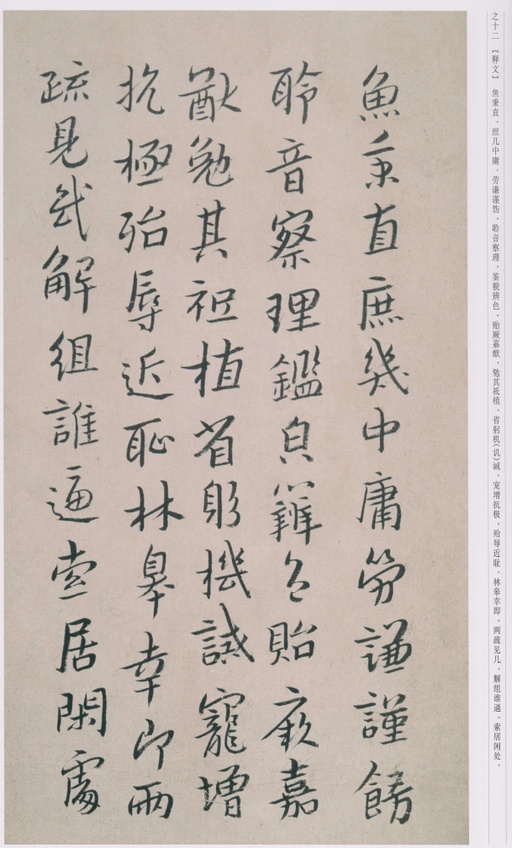 之十二 【释文】 鱼秉直。庶几中庸，劳谦谨饬。聆音察理，鉴貌辨色。贻厥嘉猷，勉其祗植。省躬机(讥)诫，宠增抗极。殆辱近耻，林皋幸即。两疏见几，解组谁逼。索居闲处，
魚秉直庶幾中庸勞謙謹飭
聆音察理鑑皃辯色貽厥嘉
猷勉其祗植省躬機誡寵增
抗極殆辱近耻林皋幸即兩
疏見幾解組誰逼索居閑處